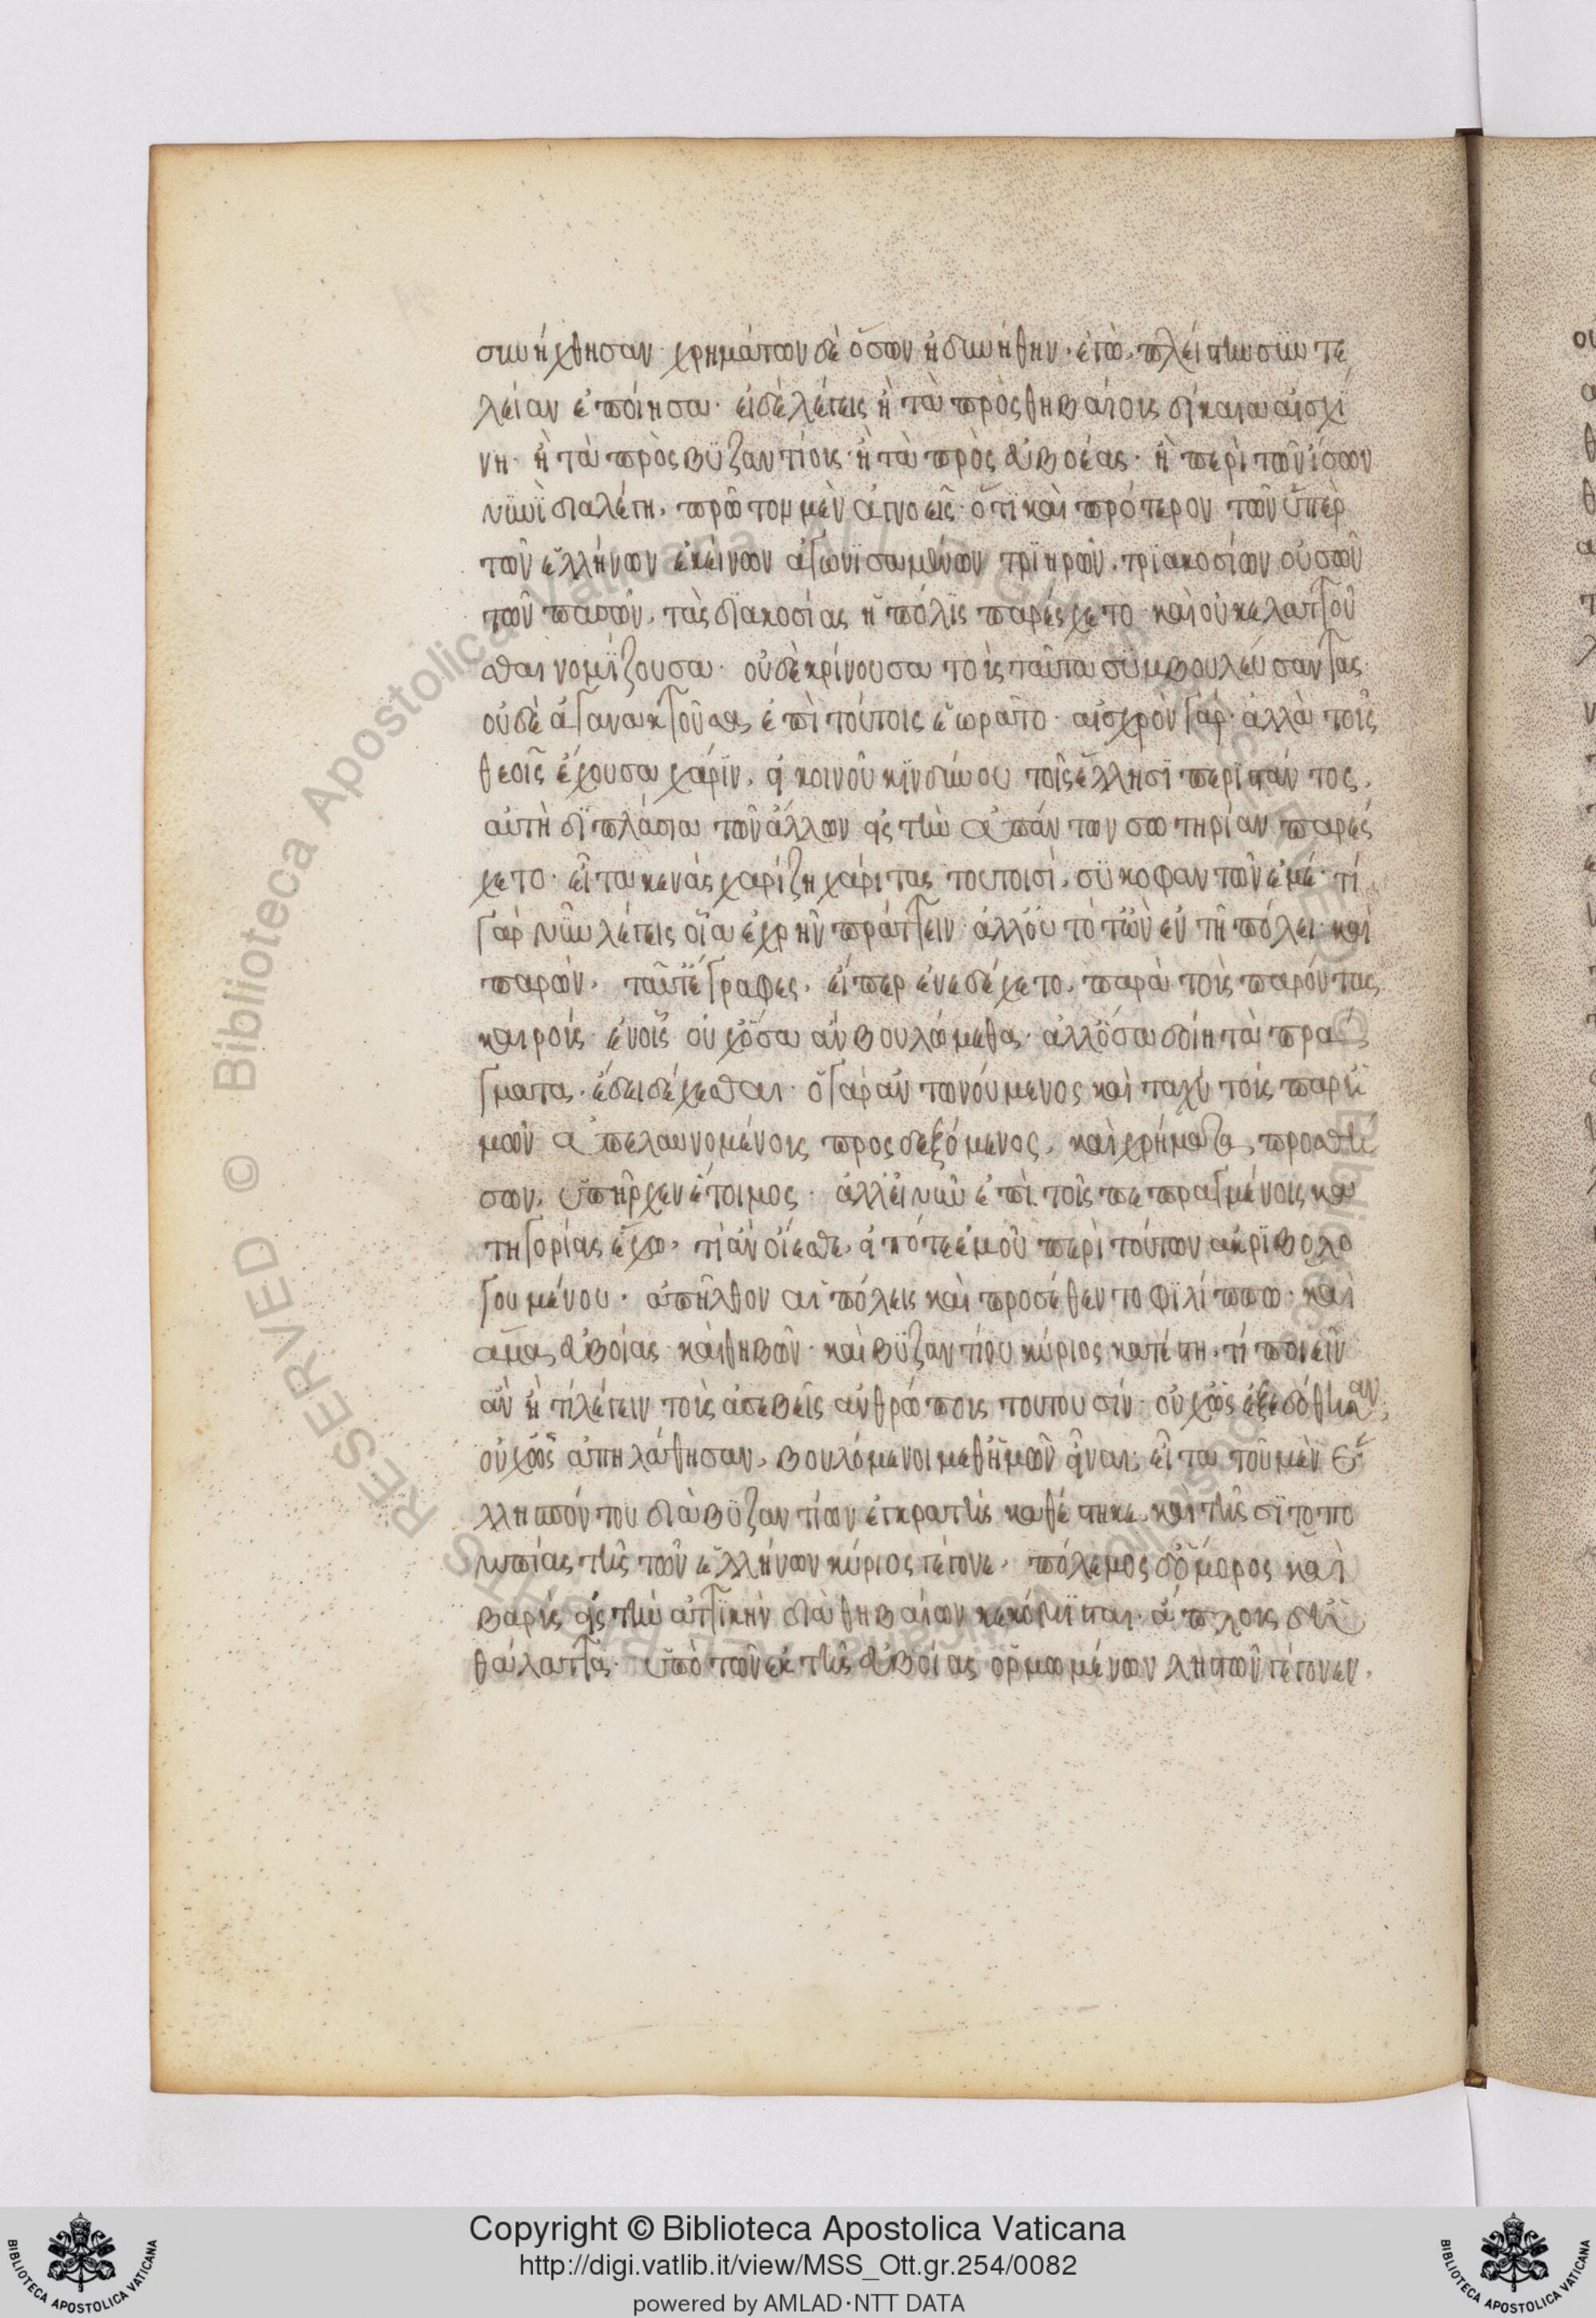 συνήχθησαν· χρημάτων δὲ ὅσων ἠδυνήθην, ἐγὼ πλείστην συντέ
λειαν ἐποίησα· εἰ δὲ λέγεις ἢ τὰ πρὸς θηβαίους δίκαια αἰσχί
νη· ἢ τὰ πρὸς βυζαντίους· ἢ τὰ πρὸς εὐβοέας· ἢ περὶ τῶν ἴσων
νυνὶ διαλέγη, πρῶτον μὲν ἀγνοεῖς ὅτι καὶ πρότερον τῶν ὑπὲρ
τῶν ἑλλήνων ἐκείνων ἀγωνισαμένων τριηρῶν, τριακοσίων οὐσῶν
τῶν πασῶν, τὰς διακοσίας ἡ πόλις παρέσχετο· καὶ οὐκ ἐλαττοῦ
σθαι νομίζουσα· οὐδὲ κρίνουσα τοὺς ταῦτα συμβουλεύσαντας·
οὐδὲ ἀγανακτοῦσα ἐπὶ τούτοις ἑωρᾶτο· αἰσχρὸν γάρ· ἀλλὰ τοῖς
θεοῖς ἔχουσα χάριν, εἰ κοινοῦ κινδύνου τοῖς ἕλλησι περιστάντος,
αὐτὴ διπλάσια τῶν ἄλλων εἰς τὴν ἁπάντων σωτηρίαν παρέσ
χετο· εἶτα κενὰς χαρίζη χάριτας τουτοισὶ, συκοφαντῶν ἐμέ· τί
γὰρ νῦν λέγεις οἷα ἐχρῆν πράττειν· ἀλλ' οὐ τότ' ὢν ἐν τῇ πόλει καὶ
παρὼν, ταῦτ' ἔγραφες, εἴπερ ἐνεδέχετο, παρὰ τοὺς παρόντας
καιρούς· ἐν οἷς οὐχ ὅσα ἂν βουλώμεθα· ἀλλ' ὅσα δοίη τὰ πρά
γματα, ἔδει δέχεσθαι· ὁ γὰρ ἀντωνούμενος καὶ ταχὺ τοὺς παρ' ἡ
μῶν ἀπελαυνομένους προσδεξόμενος, καὶ χρήματα προσθή
σων, ὑπῆρχεν ἕτοιμος· ἀλλ' εἰ νῦν ἐπὶ τοῖς πεπραγμένοις κα
τηγορίας ἔχω, τί ἂν οἴεσθε, εἰ τότε ἐμοῦ περὶ τούτων ἀκριβολο
γουμένου· ἀπῆλθον αἱ πόλεις καὶ προσέθεντο φιλίππω· καὶ
ἅμα εὐβοίας καὶ θηβῶν· καὶ βυζαντίου κύριος κατέστη, τί ποιεῖν
ἂν ἢ τί λέγειν τοὺς ἀσεβεῖς ἀνθρώπους τουτουσίν· οὐχ ὡς ἐξεδόθησαν,
οὐχ ὡς ἀπηλάθησαν, βουλόμενοι μεθ' ἡμῶν εἶναι, εἶτα τοῦ μὲν ἑ
λλησπόντου διὰ βυζαντίων ἐγκρατὴς καθέστηκε, καὶ τῆς σιτοπο
μπίας τῆς τῶν ἑλλήνων κύριος γέγονε, πόλεμος δ' ὅμορος καὶ
βαρὺς εἰς τὴν ἀττικὴν διὰ θηβαίων κεκόμισται· ἄπλους δ' ἡ
θάλαττα· ὑπὸ τῶν ἐκ τῆς εὐβοίας ὁρμωμένων ληστῶν γέγονεν,
Copyright © Biblioteca Apostolica Vaticana
http://digi.vatlib.it/view/MSS_Ott.gr.254/0082
powered by AMLAD·NTT DATA